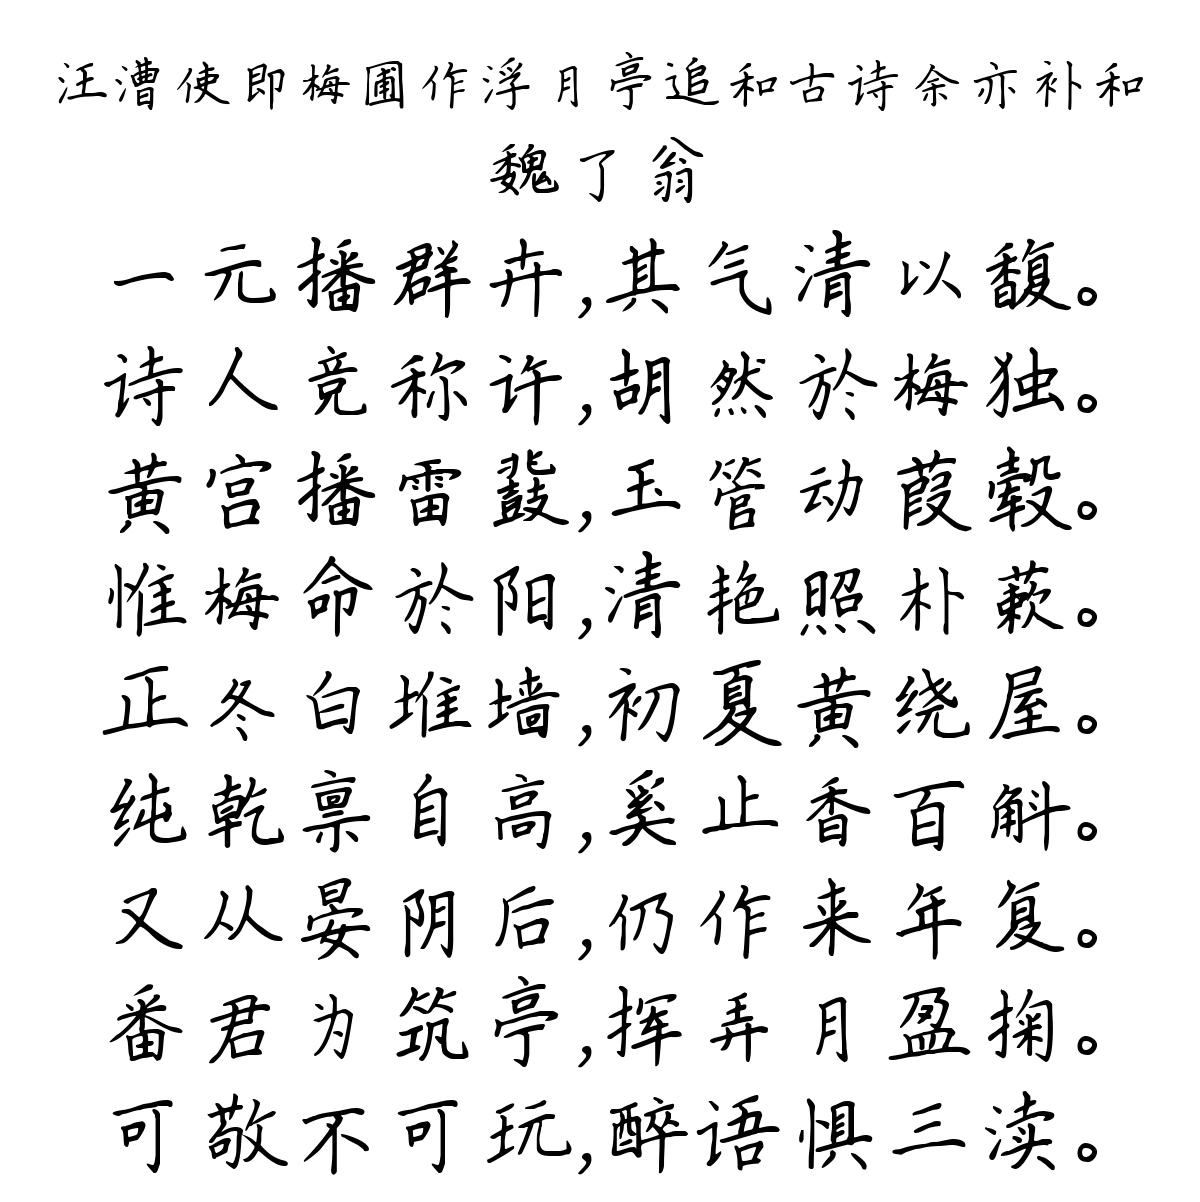 汪漕使即梅圃作浮月亭追和古诗余亦补和
魏了翁
一元播群卉,其气清以馥。
诗人竞称许,胡然於梅独。
黄宫播雷鼗,玉管动葭毂。
惟梅命於阳,清艳照朴蔌。
正冬白堆墙,初夏黄绕屋。
纯乾禀自高,奚止香百斛。
又从晏阴后,仍作来年复。
番君为筑亭,挥弄月盈掬。
可敬不可玩,醉语惧三渎。